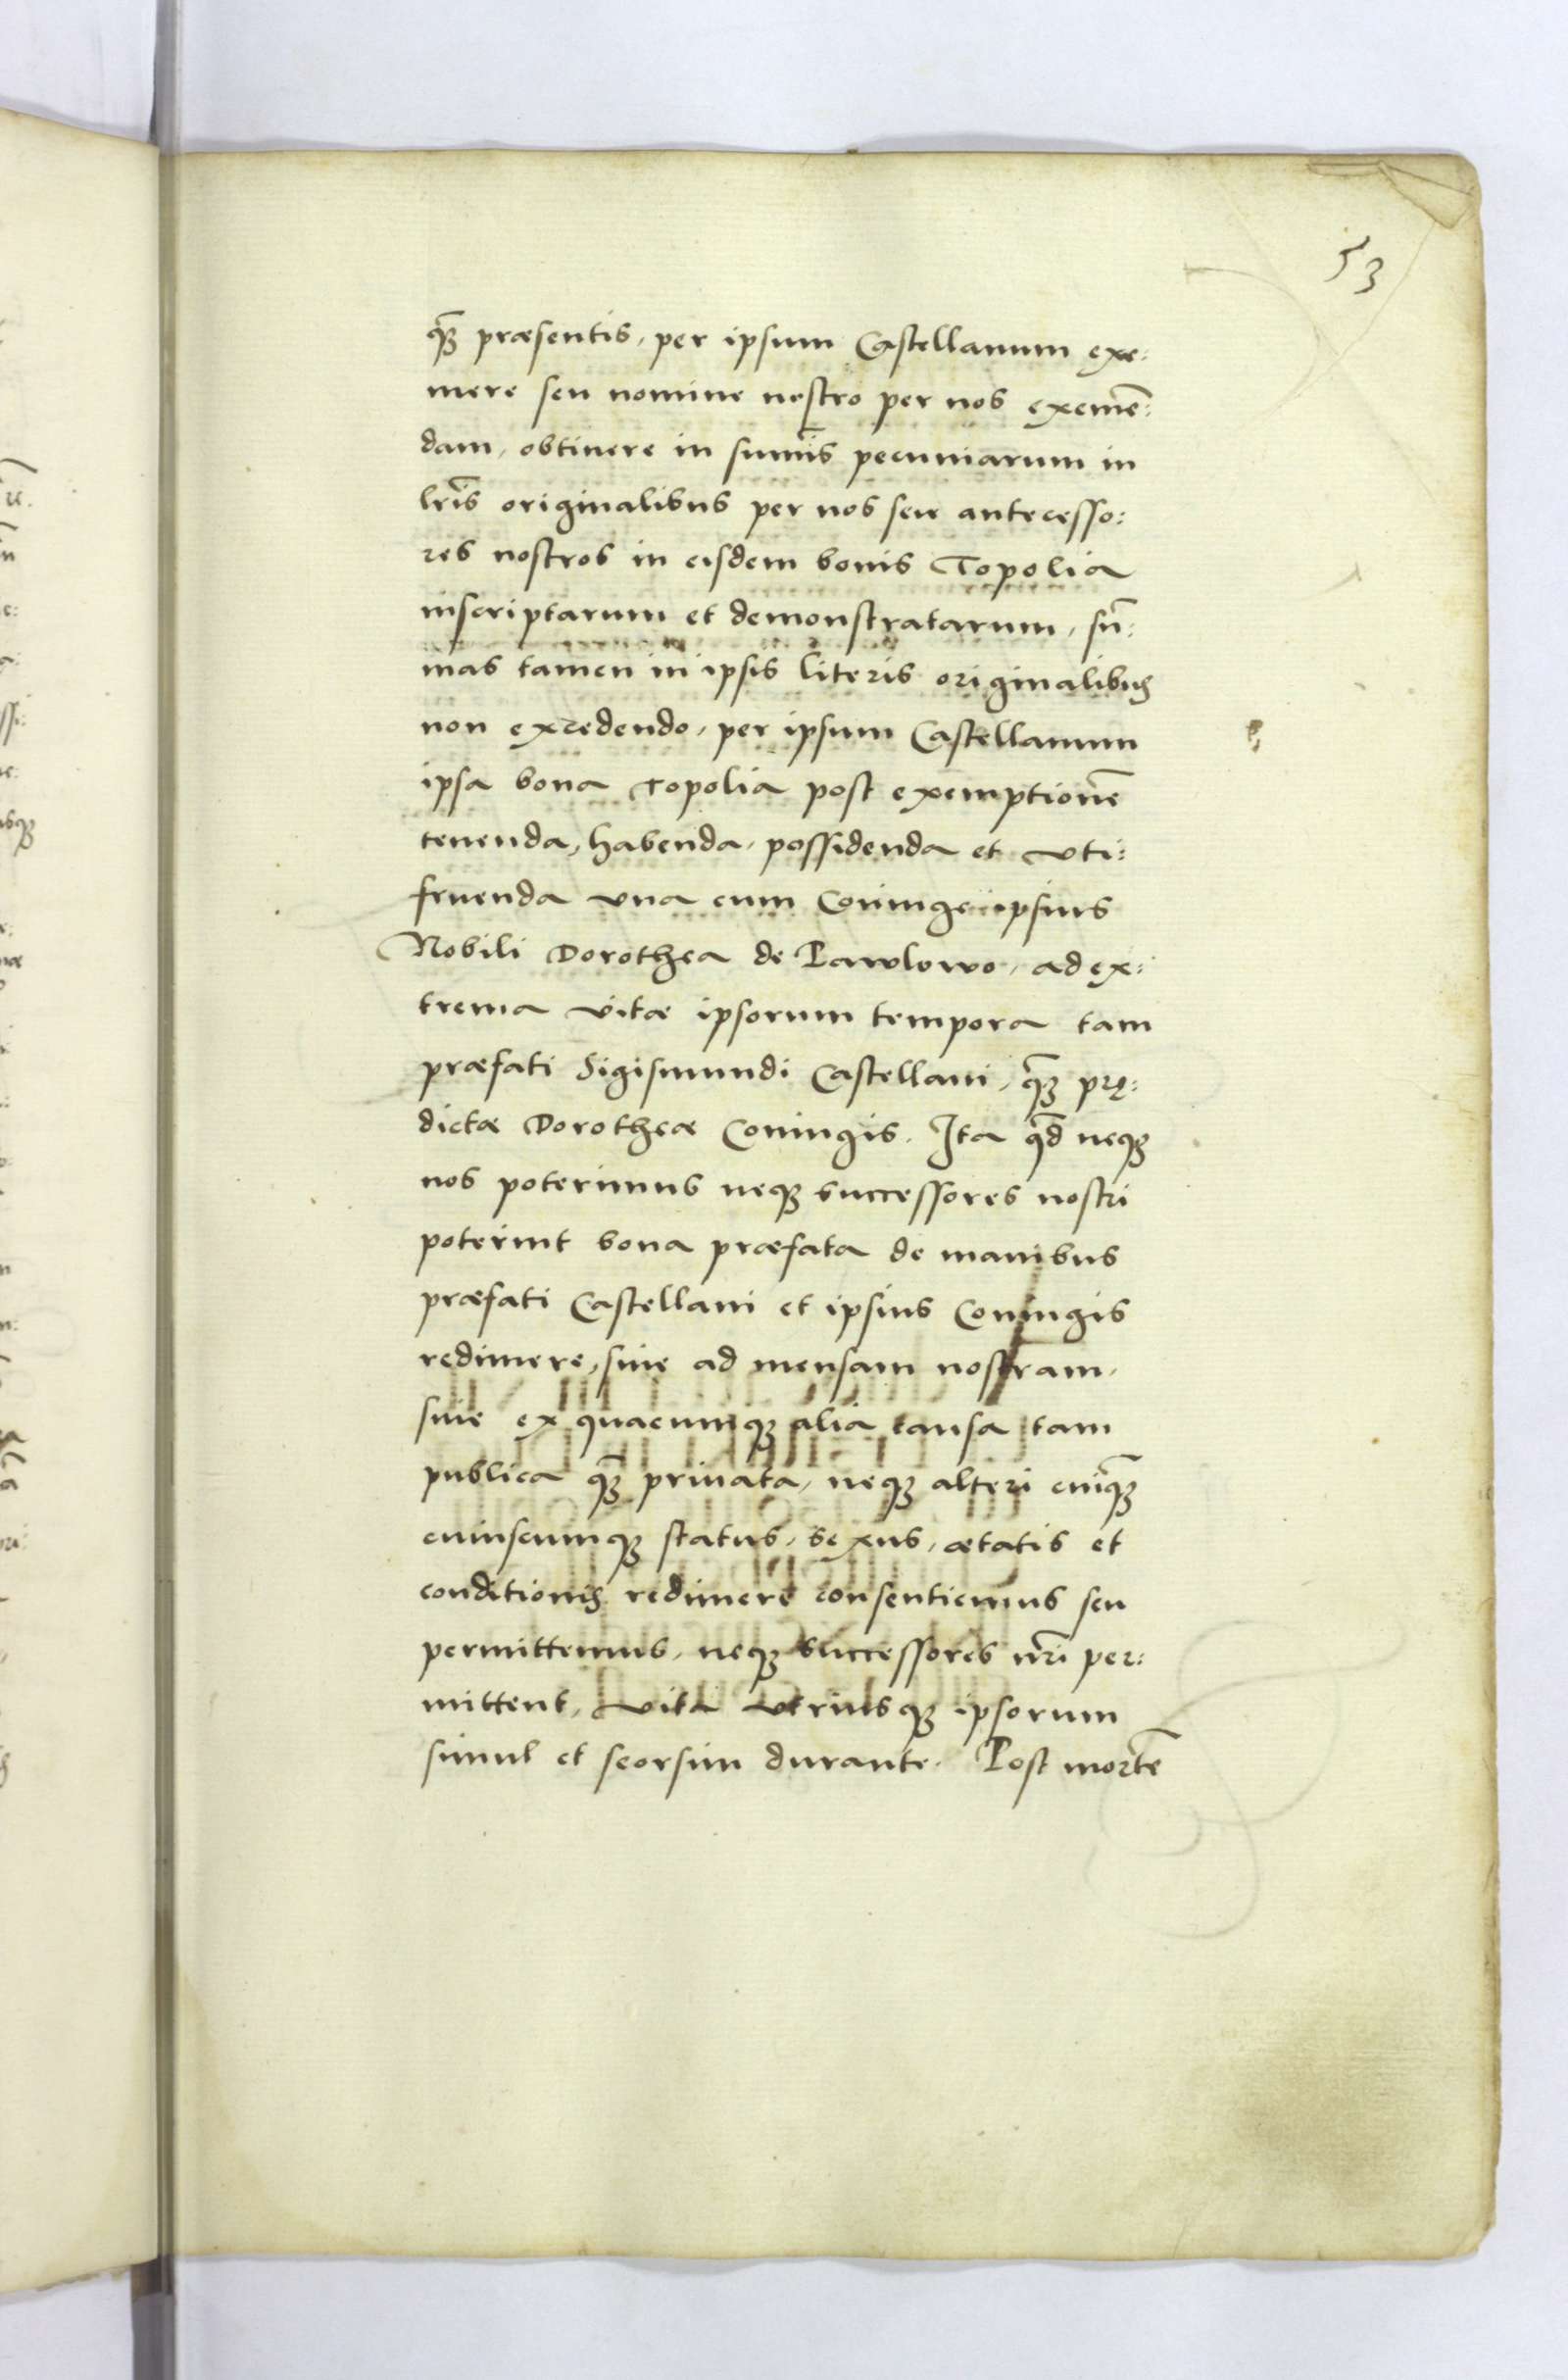 53
qua̅ꝫ præsentis, per ipsum Castellanum exe:
mere seu nomine nostro per nos exeme̅:
dam, obtinere in sum̅is pecuniarum in
lr̅is originalibus per nos seu antecesso:
res nostros in eisdem bonis Topolia
inscriptarum et demonstratarum, su̅:
mas tamen in ipsis literis originalibus
non excedendo, per ipsum Castellanum
ipsa bona Topolia post exemptione̅
tenenda, habenda, possidenda et vti:
fruenda vna cum Coniuge ipsius
Nobili Dorothea de Pawlowo, ad ex:
trema vitæ ipsorum tempora tam
præfati Sigismundi Castellani, q̅ꝫ prę:
dictæ Dorotheæ Coniugis. Ita q̅d neqꝫ
nos poterimus neqꝫ successores nostri
poterint bona præfata de manibus
præfati Castellani et ipsius Coniugis
redimere, siue ad mensam nostram,
siue ex quacumqꝫ alia causa tam
publica q̅ꝫ priuata, neqꝫ alteri cuiq̅ꝫ
cuiuscumqꝫ status, sexus, ætatis et
conditionis redimere consentiemus seu
permittemus, neqꝫ successores nr̅i per:
mittent, vita vtriusqꝫ ipsorum
simul et seorsim durante. Post morte̅